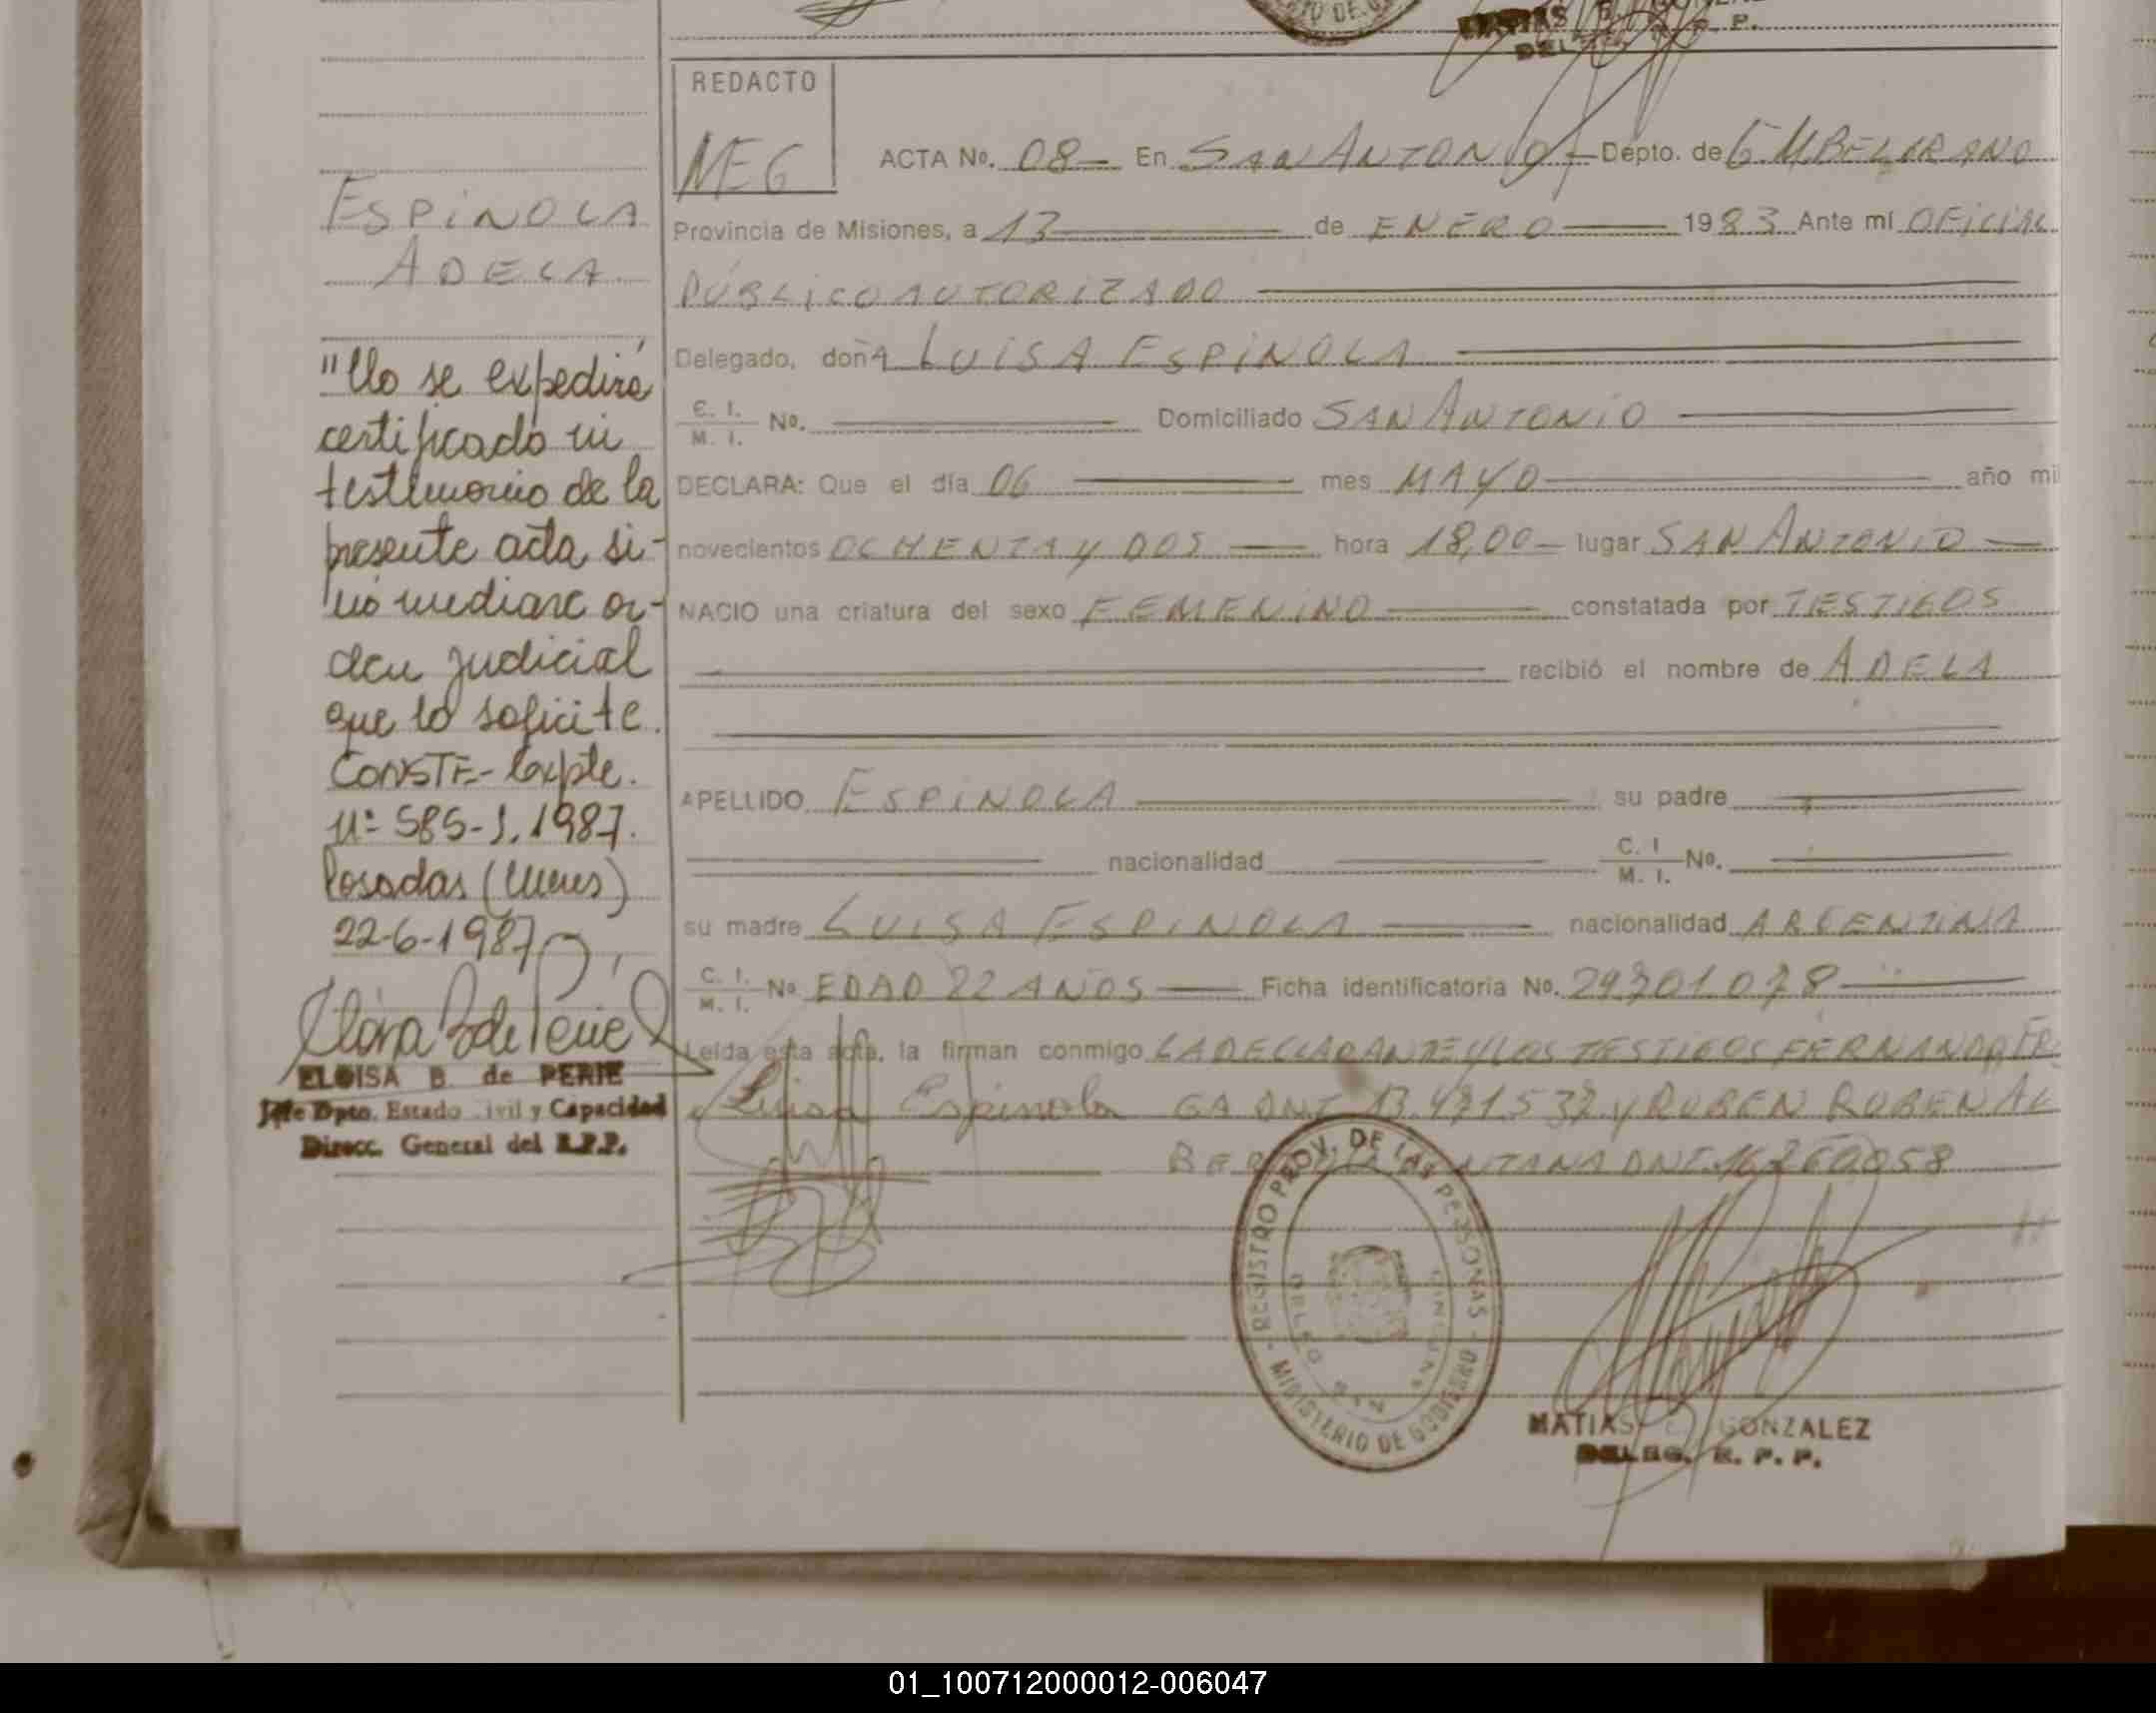 REDACTO
MEG
ACTA No. 08 En SAN ANTONIO Depto. de G. M BELGRANO
Provincia de Misiones, a 13 de ENERO 1983 Ante mí OFICIAL
PÚBLICO AUTORIZADO
Delegado, doñA LUISA ESPINOLA
C. I. M. I. No. Domiciliado SAN ANTONIO
DECLARA: Que el día 06 mes MAYO año mil
novecientos OCHENTA Y DOS hora 18,00 lugar SAN ANTONIO
NACIO una criatura del sexo FEMENINO constatada por TESTIGOS
recibió el nombre de ADELA
APELLIDO ESPINOLA su padre
nacionalidad C. I M. I. No.
su madre LUISA ESPINOLA nacionalidad ARGENTINA
C. I. M. I. No EDAD 22 AÑOS Ficha identificatoria No.
Leída esta acta, la firman conmigo LA DECLARANTE Y LOS TESTIGOS
Luisa Espinola DNI Y RUBEN RUBEN
DNI
REGISTRO PROV. DE LAS PERSONAS
MINISTERIO DE GOBIERNO
MATIAS GONZALEZ
DELEG. R. P. P.
ESPINOLA
ADELA
"No se expedirá
certificado ni
testimonio de la
presente acta si-
no mediare or-
den judicial
que lo solicite.
CONSTE- Expte.
Nº 585-J. 1987.
Posadas (Mnes)
22-6-1987
ELOISA B. de PERIE
Jefe Dpto. Estado Civil y Capacidad
Direcc. General del R.P.P.
01_100712000012-006047